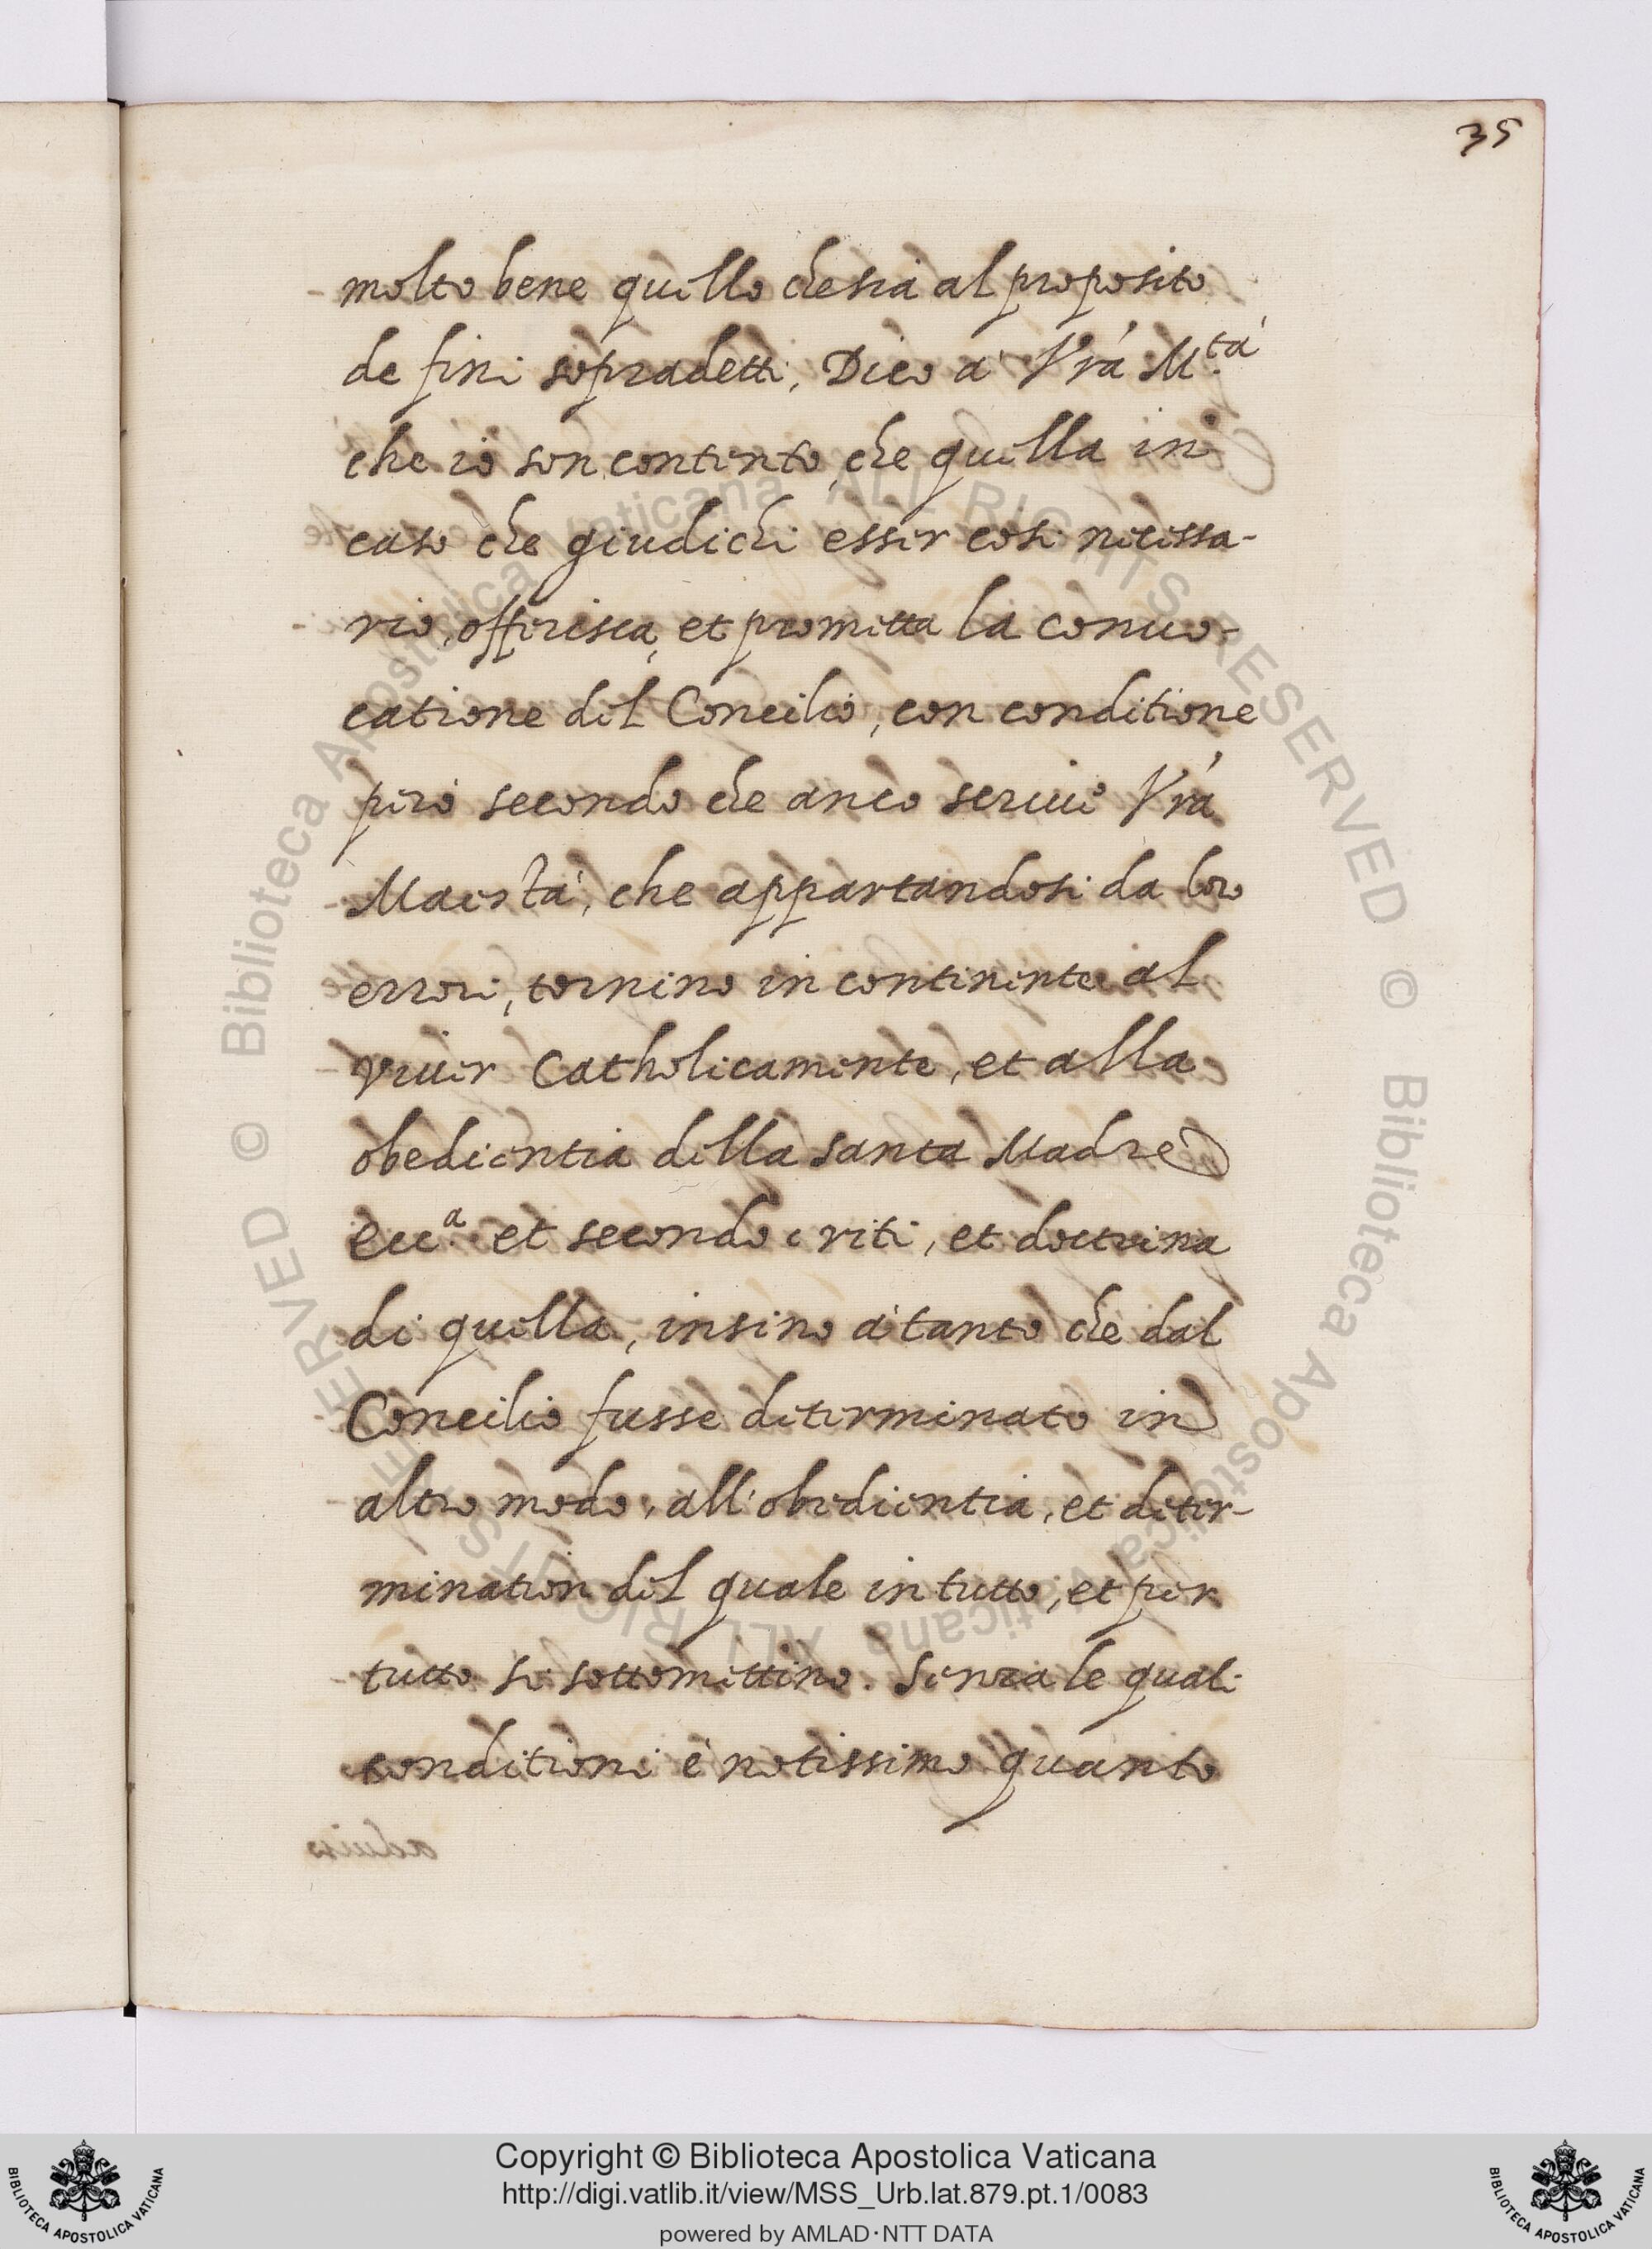 35
molto bene quello che sia al proposito
de fini sopradetti, Dico à Vrà M.tà
che io son contento, che quella in
caso che giudichi esser così necessa-
rio, offerisca, et prometta la conuo-
catione del Concilio, con conditione
però secondo che anco scriuio Vrà
Maestà, che appartandosi da loro
errori, tornino in continente al
viuer Catholicamente, et alla
obedientia della santa Madre
ecc.a et secondo i riti, et doctrina
di quella, insino à tanto che dal
Concilio fusse determinato in
altro modo, all'obedientia, et deter-
mination del quale in tutto, et per
tutto si sottomettino. Senza le quali
conditioni è notissimo quanto
Copyright © Biblioteca Apostolica Vaticana
http://digi.vatlib.it/view/MSS_Urb.lat.879.pt.1/0083
powered by AMLAD·NTT DATA
BIBLIOTECA APOSTOLICA VATICANA
BIBLIOTECA APOSTOLICA VATICANA
© Biblioteca Apostolica Vaticana ALL RIGHTS RESERVED
© Biblioteca Apostolica Vaticana ALL RIGHTS RESERVED